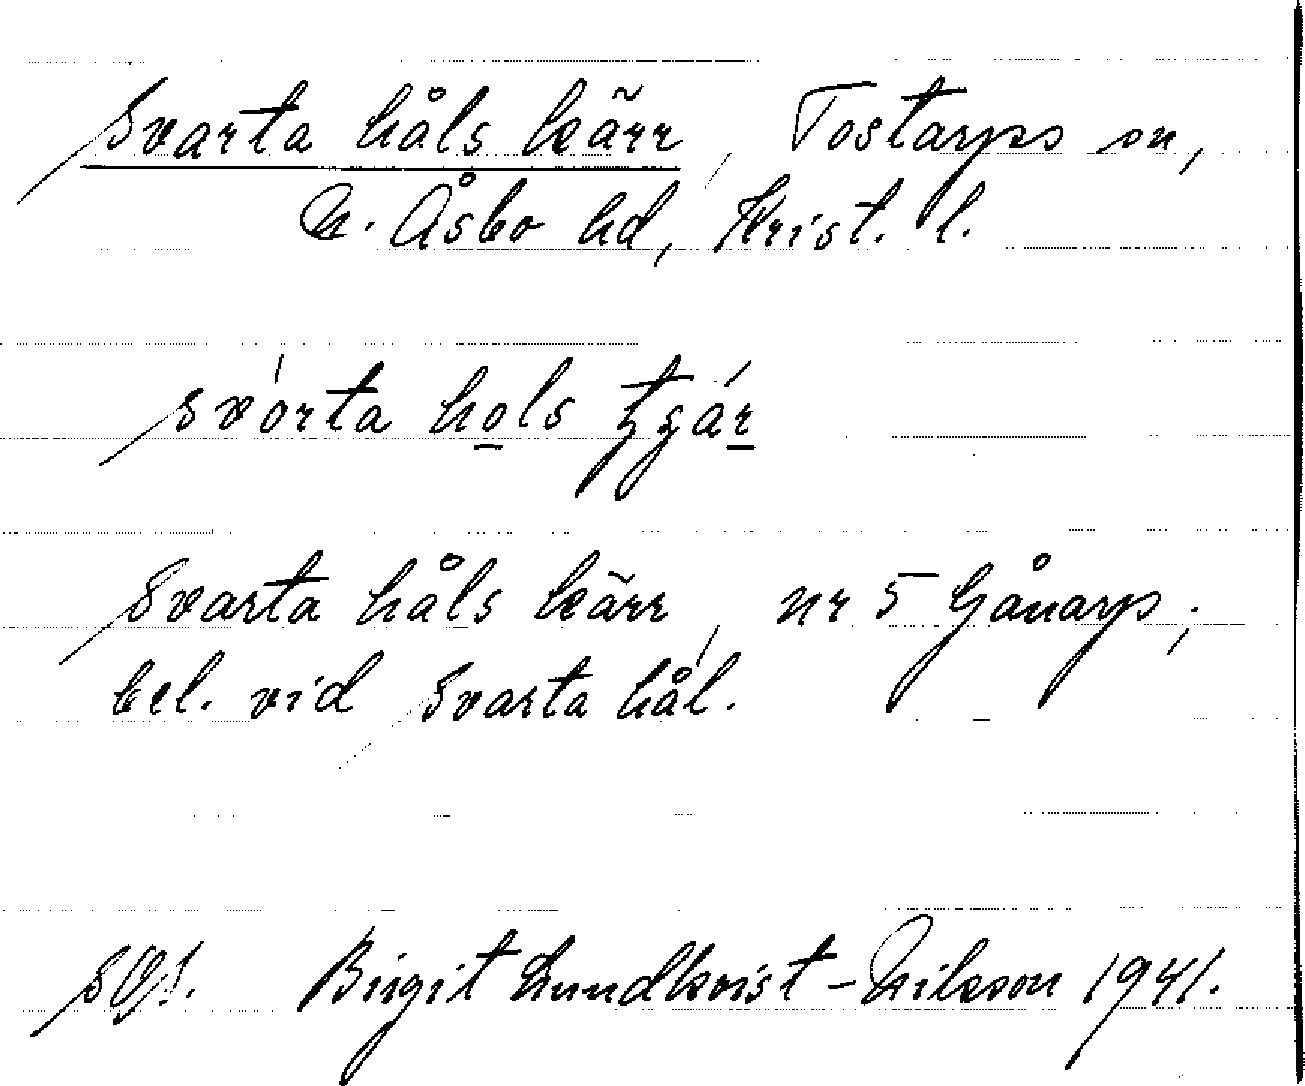 Svarta håls kärr, Tostarps sn,
N. Åsbo hd, Krist. l.
svórta hols tʒár
Svarta håls kärr, nr 5 Gånarp;
bel. vid Svarta hål.
Birgit Lundkvist-Nilsson 1941.